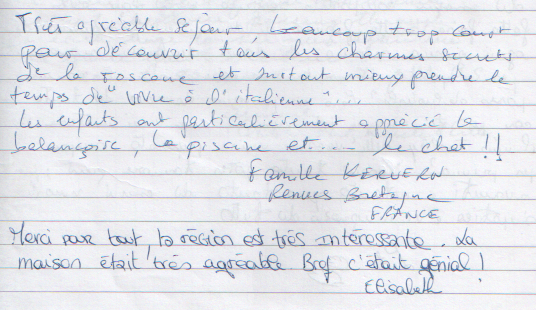 Très agréable séjour, beaucoup trop court
pour découvrir tous les charmes secrets
de la Toscane et surtout mieux prendre le
temps de "vivre à l'italienne"...
Les enfants ont particulièrement apprécié la
balançoire, la piscine et.... le chat !!
Famille KERVERN
Rennes Bretagne
FRANCE
Merci pour tout, la région est très intéressante. La
maison était très agréable Bref c'était génial !
Elisabeth